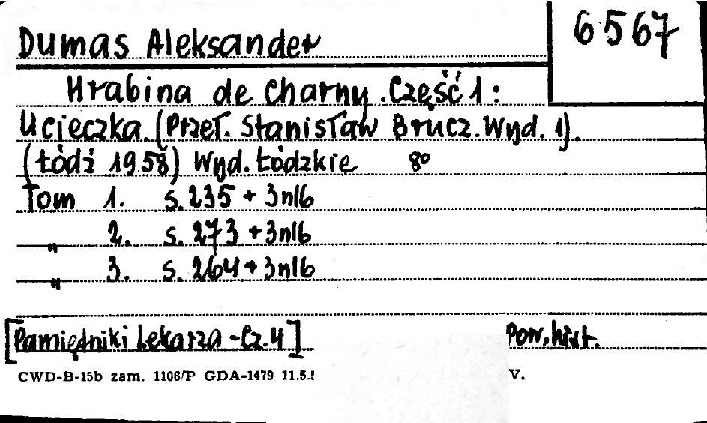 6567
Dumas Aleksander
Hrabina de Charny. Część 1:
Ucieczka. (Przeł. Stanisław Brucz. Wyd. 1).
(Łódź 1958) Wyd. Łódzkie 8º
Tom 1. s. 235 + 3nlb
" 2. s. 273 + 3nlb
" 3. s. 264 + 3nlb
[Pamiętniki Lekarza - Cz. 4] Pow. hist.
CWD-B-15b zam. 1106/P GDA-1479 11.5. V.